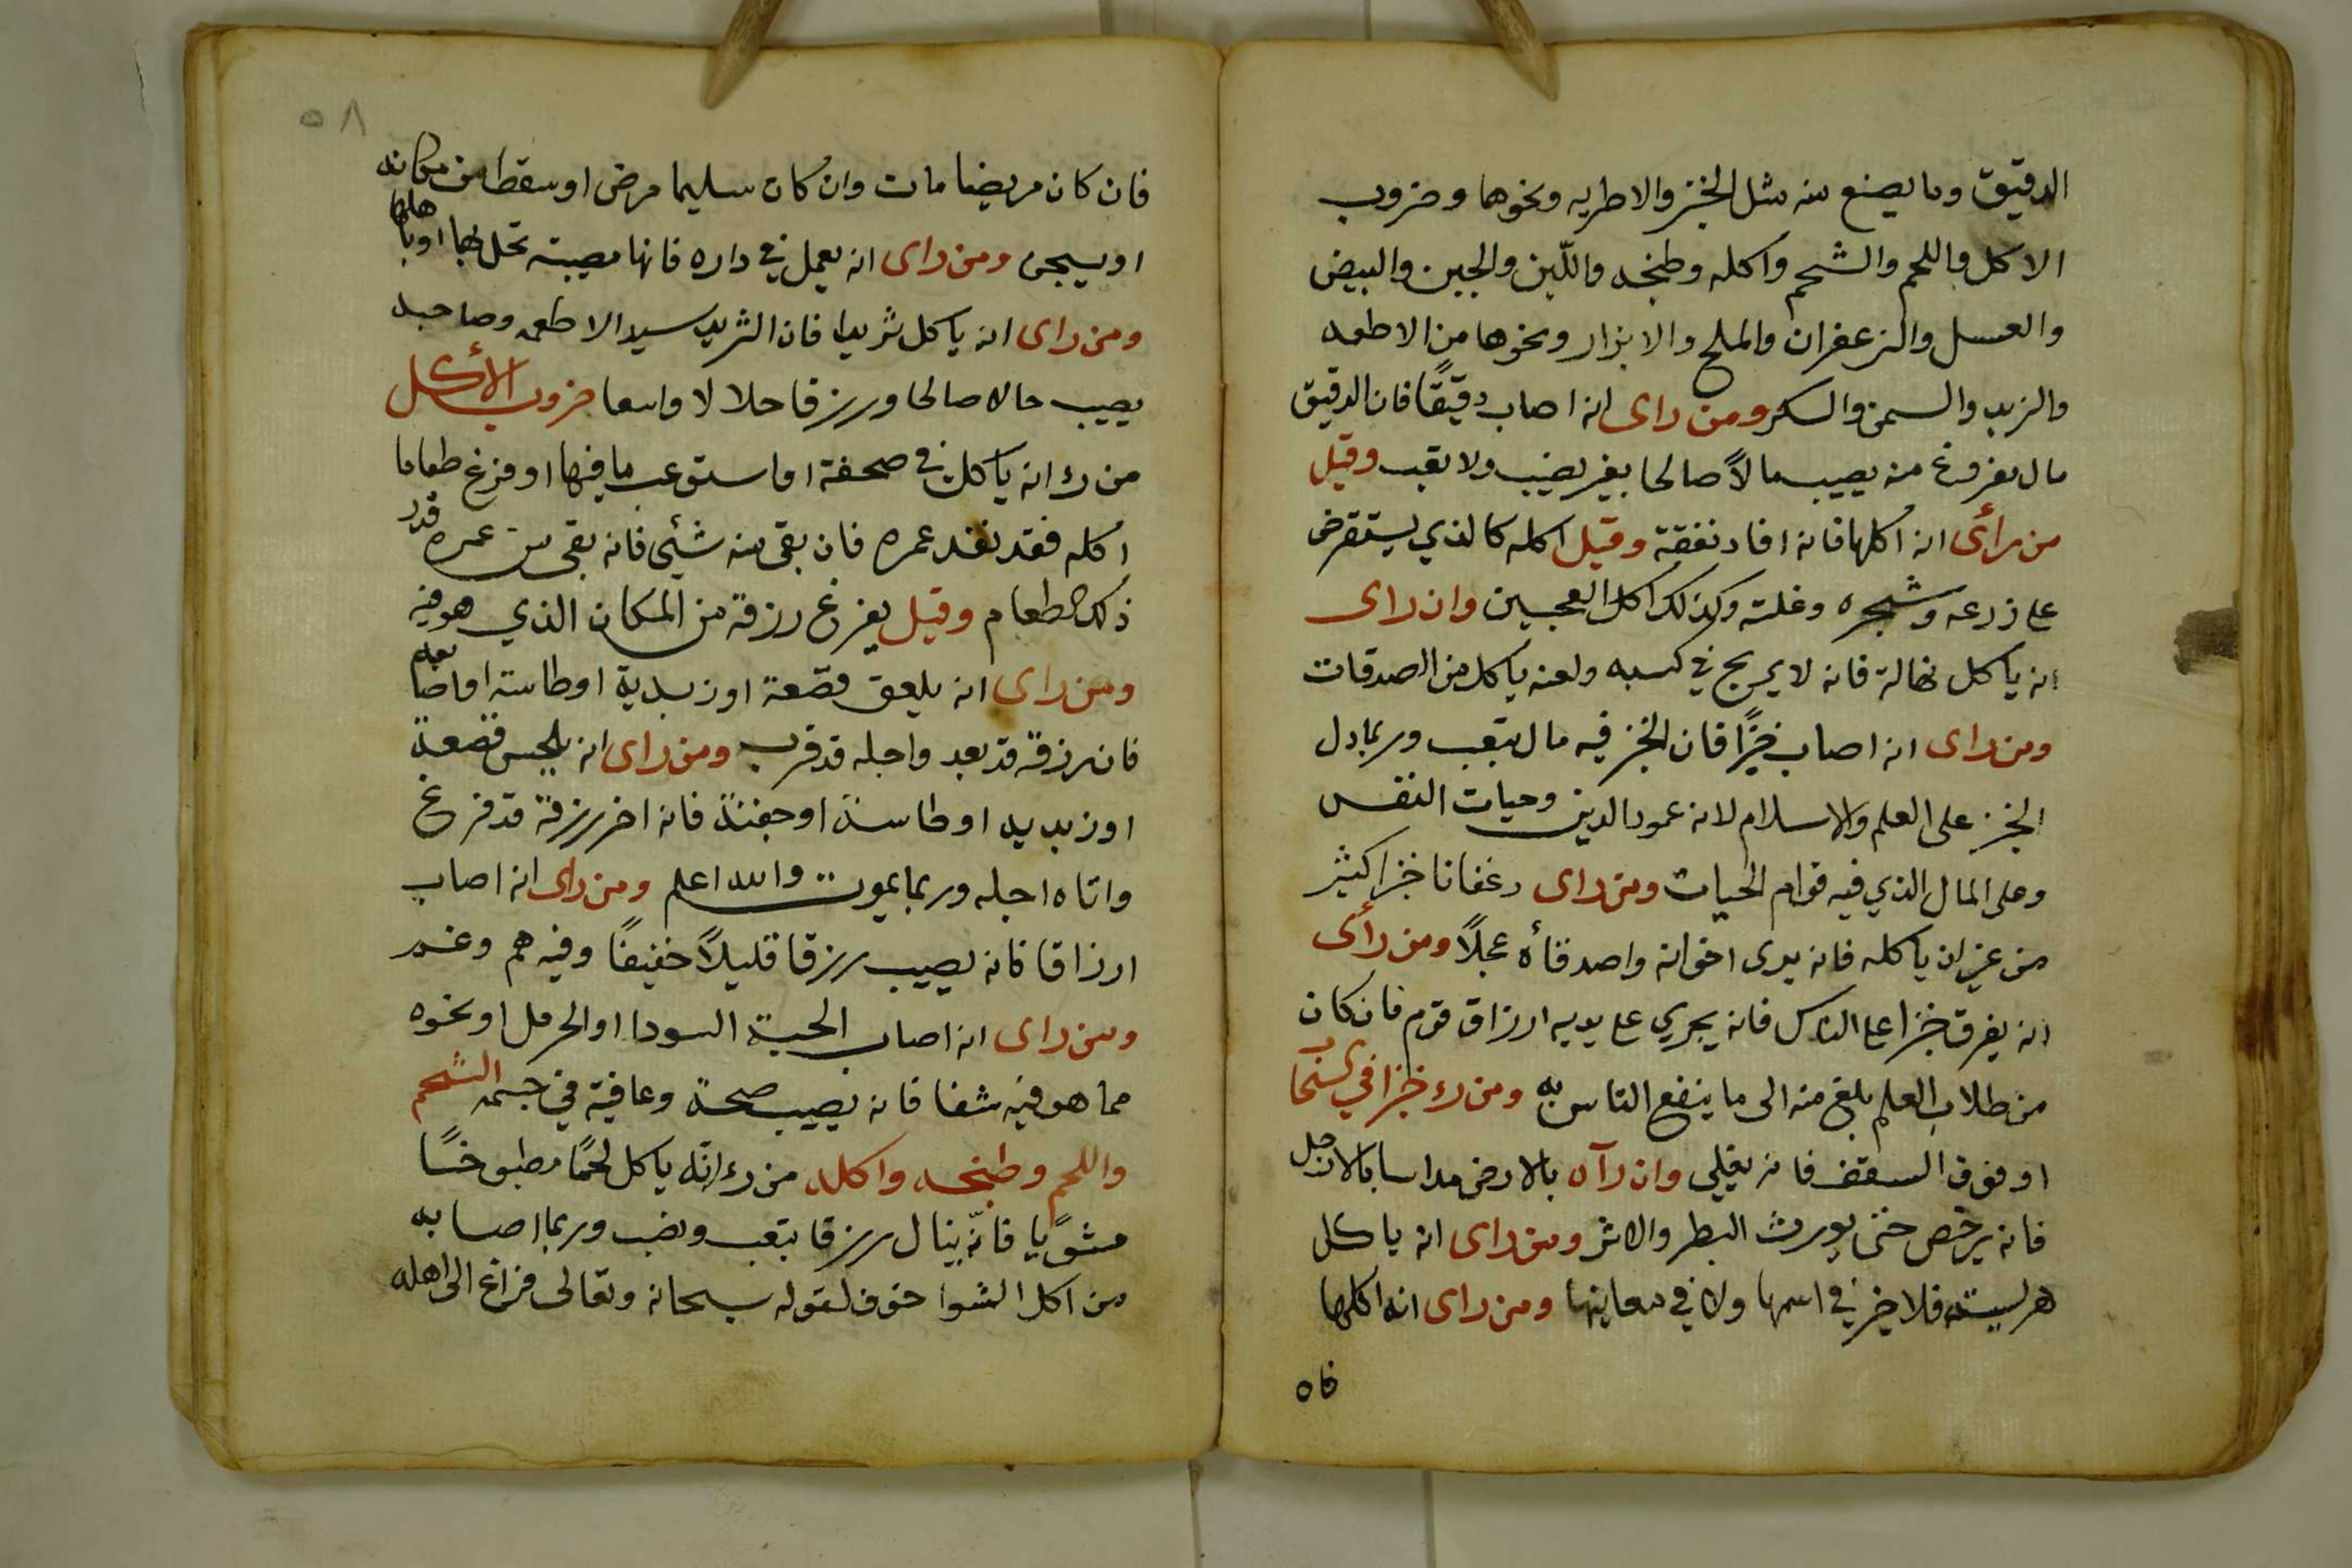 الدقيق وما يصنع منه مثل الخبز والاطريه ونحوهما وضروب
الاكل واللحم والشحم واكله وطبخه واللّبن والجبن والبيض
والعسل والزعفران والملح والابزار ونحوها من الاطعمه
والزبد والسمن والسكر ومن راى انه اصاب دقيقًا فان الدقيق
مال مفروغ منه يصيب مالاً صالحا بغير نصب ولا تعب وقيل
من رأى انه اكلها فانه افاد نفقة وقيل اكله كالذي يستقرض
على زرعه وشجره وغلته وكذلك اكل العجين وان راى
انه ياكل نخالة فانه لا يربح في كسبه ولعنه ياكل من الصدقات
ومن راى انه اصاب خبزًا فان الخبز فيه مال بتعب وربما دل
الخبز على العلم والاسلام لانه عمود الدين وحيات النفس
وعلى المال الذي فيه قوام الحيات ومن راى رغفانا خبزا كثير
من غير ان ياكله فانه يرى اخوانه واصدقاأه عجلاً ومن رأى
انه يفرق خبزا على الناس فانه يجري على يديه ارزاق قوم فان كان
من طلاب العلم بلغ منه الى ما ينفع الناس به ومن رء خبزا في
او فوق السقف فانه يغلي وان رآه بالارض مداسا بالارجل
فانه يرخص حتى يورث البطر والاشر ومن راى انه ياكل
هريسته فلا خير في اسمها ولا في معاينها ومن راى انه اكلها
فاه
٥٨
فان كان مريضا مات وان كان سليما مرض او سقط من مكانه
او يسجن ومن راى انه يعمل في داره فانها مصيبته تحل بها او باهلها
ومن راى انه ياكل ثريدا فان الثريد سيد الاطعمه وصاحبه
يصيب حالا صالحا ورزقا حلالا واسعا ضروب الأكل
من رء انه ياكل في صحفة او استوعب ما فيها او فرغ طعاما
اكله فقد نفد عمره فان بقى منه شئى فانه بقى من عمره قدر
ذلك الطعام وقيل يفرغ رزقه من المكان الذي هو فيه
ومن راى انه يلعق قصعة او زبدية او طاسته او اصابعه
فان رزقه قد بعد واجله قد قرب ومن راى انه يلحس قصعة
او زبديه او طاسة او جفنة فانه اخر رزقه قد فرغ
واتاه اجله وربما يموت والله اعلم ومن راى انه اصاب
ارزاقا فانه يصيب رزقا قليلاً خفيفًا وفيه هم وغم
ومن راى انه اصاب الحبة السودا او الحرمل او نحوه
مما هو فيه شفا فانه يصيب صحة وعافية في جسمه الشحم
واللحم وطبخه واكله من رء انّه ياكل لحمًا مطبوخًا
مشويًا فانّه ينال رزقا بتعب ونصب وربما اصابه
من اكل الشوا خوف لقوله سبحانه وتعالى فراغ الى اهله